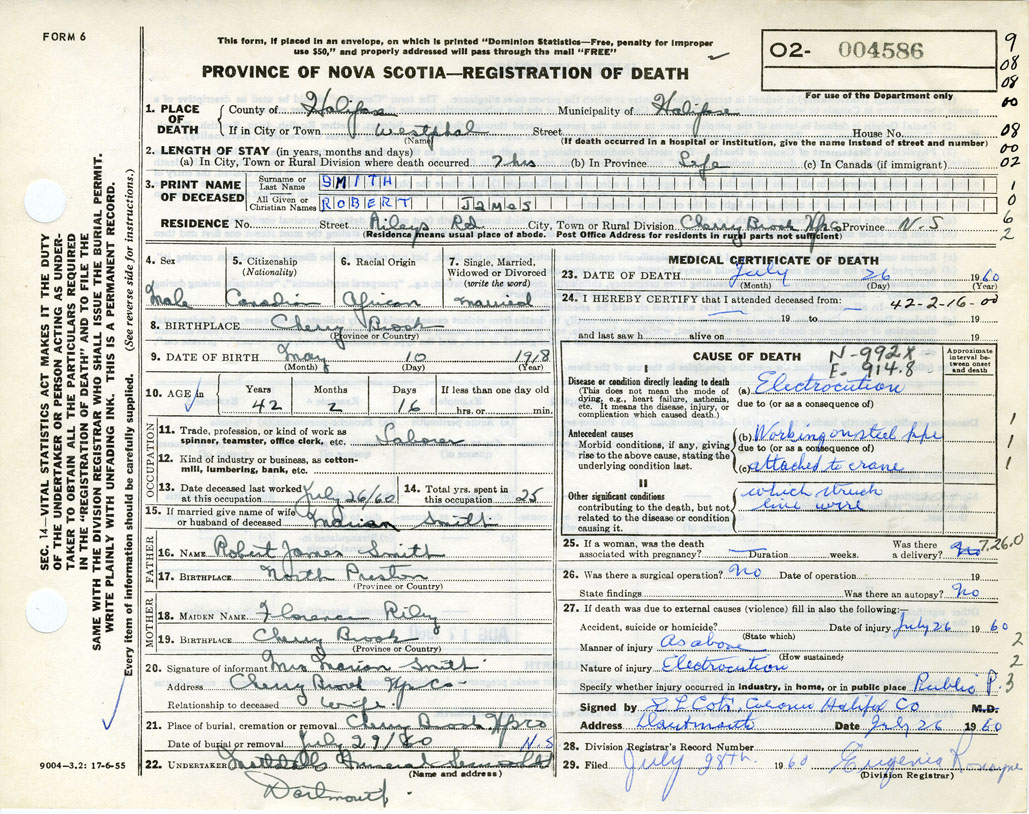 FORM 6
This form, if placed in an envelope, on which is printed "Dominion Statistics—Free, penalty for improper
use $50," and properly addressed will pass through the mail "FREE"
PROVINCE OF NOVA SCOTIA—REGISTRATION OF DEATH
O2- 004586
For use of the Department only
9
08
08
00
08
00
02
1
0
6
2
1. PLACE OF DEATH
County of Halifax Municipality of Halifax
If in City or Town Westphal Street House No.
(Name) (If death occurred in a hospital or institution, give the name instead of street and number)
2. LENGTH OF STAY (in years, months and days)
(a) In City, Town or Rural Division where death occurred 7 hrs (b) In Province Life (c) In Canada (if immigrant)
3. PRINT NAME OF DECEASED
Surname or Last Name SMITH
All Given or Christian Names ROBERT JAMES
RESIDENCE No. Street Rileys Rd City, Town or Rural Division Cherry Brook Hfx Co Province N.S
(Residence means usual place of abode. Post Office Address for residents in rural parts not sufficient)
4. Sex
Male
5. Citizenship
(Nationality)
Canadian
6. Racial Origin
African
7. Single, Married, Widowed or Divorced
(write the word)
married
8. BIRTHPLACE Cherry Brook
(Province or Country)
9. DATE OF BIRTH May 10 1918
(Month) (Day) (Year)
10. AGE in Years Months Days If less than one day old
42 2 16 hrs. or min.
OCCUPATION
11. Trade, profession, or kind of work as
spinner, teamster, office clerk, etc. Laborer
12. Kind of industry or business, as cotton-
mill, lumbering, bank, etc.
13. Date deceased last worked
at this occupation July 26/60
14. Total yrs. spent in
this occupation 25
15. If married give name of wife
or husband of deceased Marian Smith
FATHER
16. NAME Robert James Smith
17. BIRTHPLACE North Preston
(Province or Country)
MOTHER
18. MAIDEN NAME Florence Rily
19. BIRTHPLACE Cherry Brook
(Province or Country)
20. Signature of informant Mrs Marian Smith
Address Cherry Brook Hfx Co
Relationship to deceased wife
21. Place of burial, cremation or removal Cherry Brook Hfx Co
Date of burial or removal July 29/60 N.S
22. UNDERTAKER Funeral
(Name and address)
Dartmouth
9004-3.2: 17-6-55
MEDICAL CERTIFICATE OF DEATH
23. DATE OF DEATH July 26 1960
(Month) (Day) (Year)
24. I HEREBY CERTIFY that I attended deceased from: 42-2-16-00
19 to 19
and last saw h alive on 19
CAUSE OF DEATH
N-992X
E-914.8
Approximate interval between onset and death
I
Disease or condition directly leading to death
(This does not mean the mode of
dying, e.g., heart failure, asthenia,
etc. It means the disease, injury, or
complication which caused death.)
(a) Electrocution
due to (or as a consequence of)
Antecedent causes
Morbid conditions, if any, giving
rise to the above cause, stating the
underlying condition last.
(b) Working on steel pipe
due to (or as a consequence of)
(c) attached to crane
1
1
1
II
Other significant conditions
contributing to the death, but not
related to the disease or condition
causing it.
which struck
live wire
25. If a woman, was the death
associated with pregnancy? Duration weeks. Was there
a delivery? No 7.26.0
26. Was there a surgical operation? No Date of operation 19
State findings Was there an autopsy? No
27. If death was due to external causes (violence) fill in also the following:—
Accident, suicide or homicide? Date of injury July 26 1960
(State which)
Manner of injury As above 2
(How sustained)
Nature of injury Electrocution 2
Specify whether injury occurred in industry, in home, or in public place Public P. 3
Signed by Coroner Halifax Co M.D.
Address Dartmouth Date July 26 1960
28. Division Registrar's Record Number
29. Filed July 28th. 1960 Eugenia
(Division Registrar)
SEC. 14—VITAL STATISTICS ACT MAKES IT THE DUTY
OF THE UNDERTAKER OR PERSON ACTING AS UNDER-
TAKER TO OBTAIN ALL THE PARTICULARS REQUIRED
IN THE "REGISTRATION OF DEATH" AND TO FILE THE
SAME WITH THE DIVISION REGISTRAR WHO SHALL ISSUE THE BURIAL PERMIT.
WRITE PLAINLY WITH UNFADING INK. THIS IS A PERMANENT RECORD.
Every item of information should be carefully supplied. (See reverse side for instructions.)